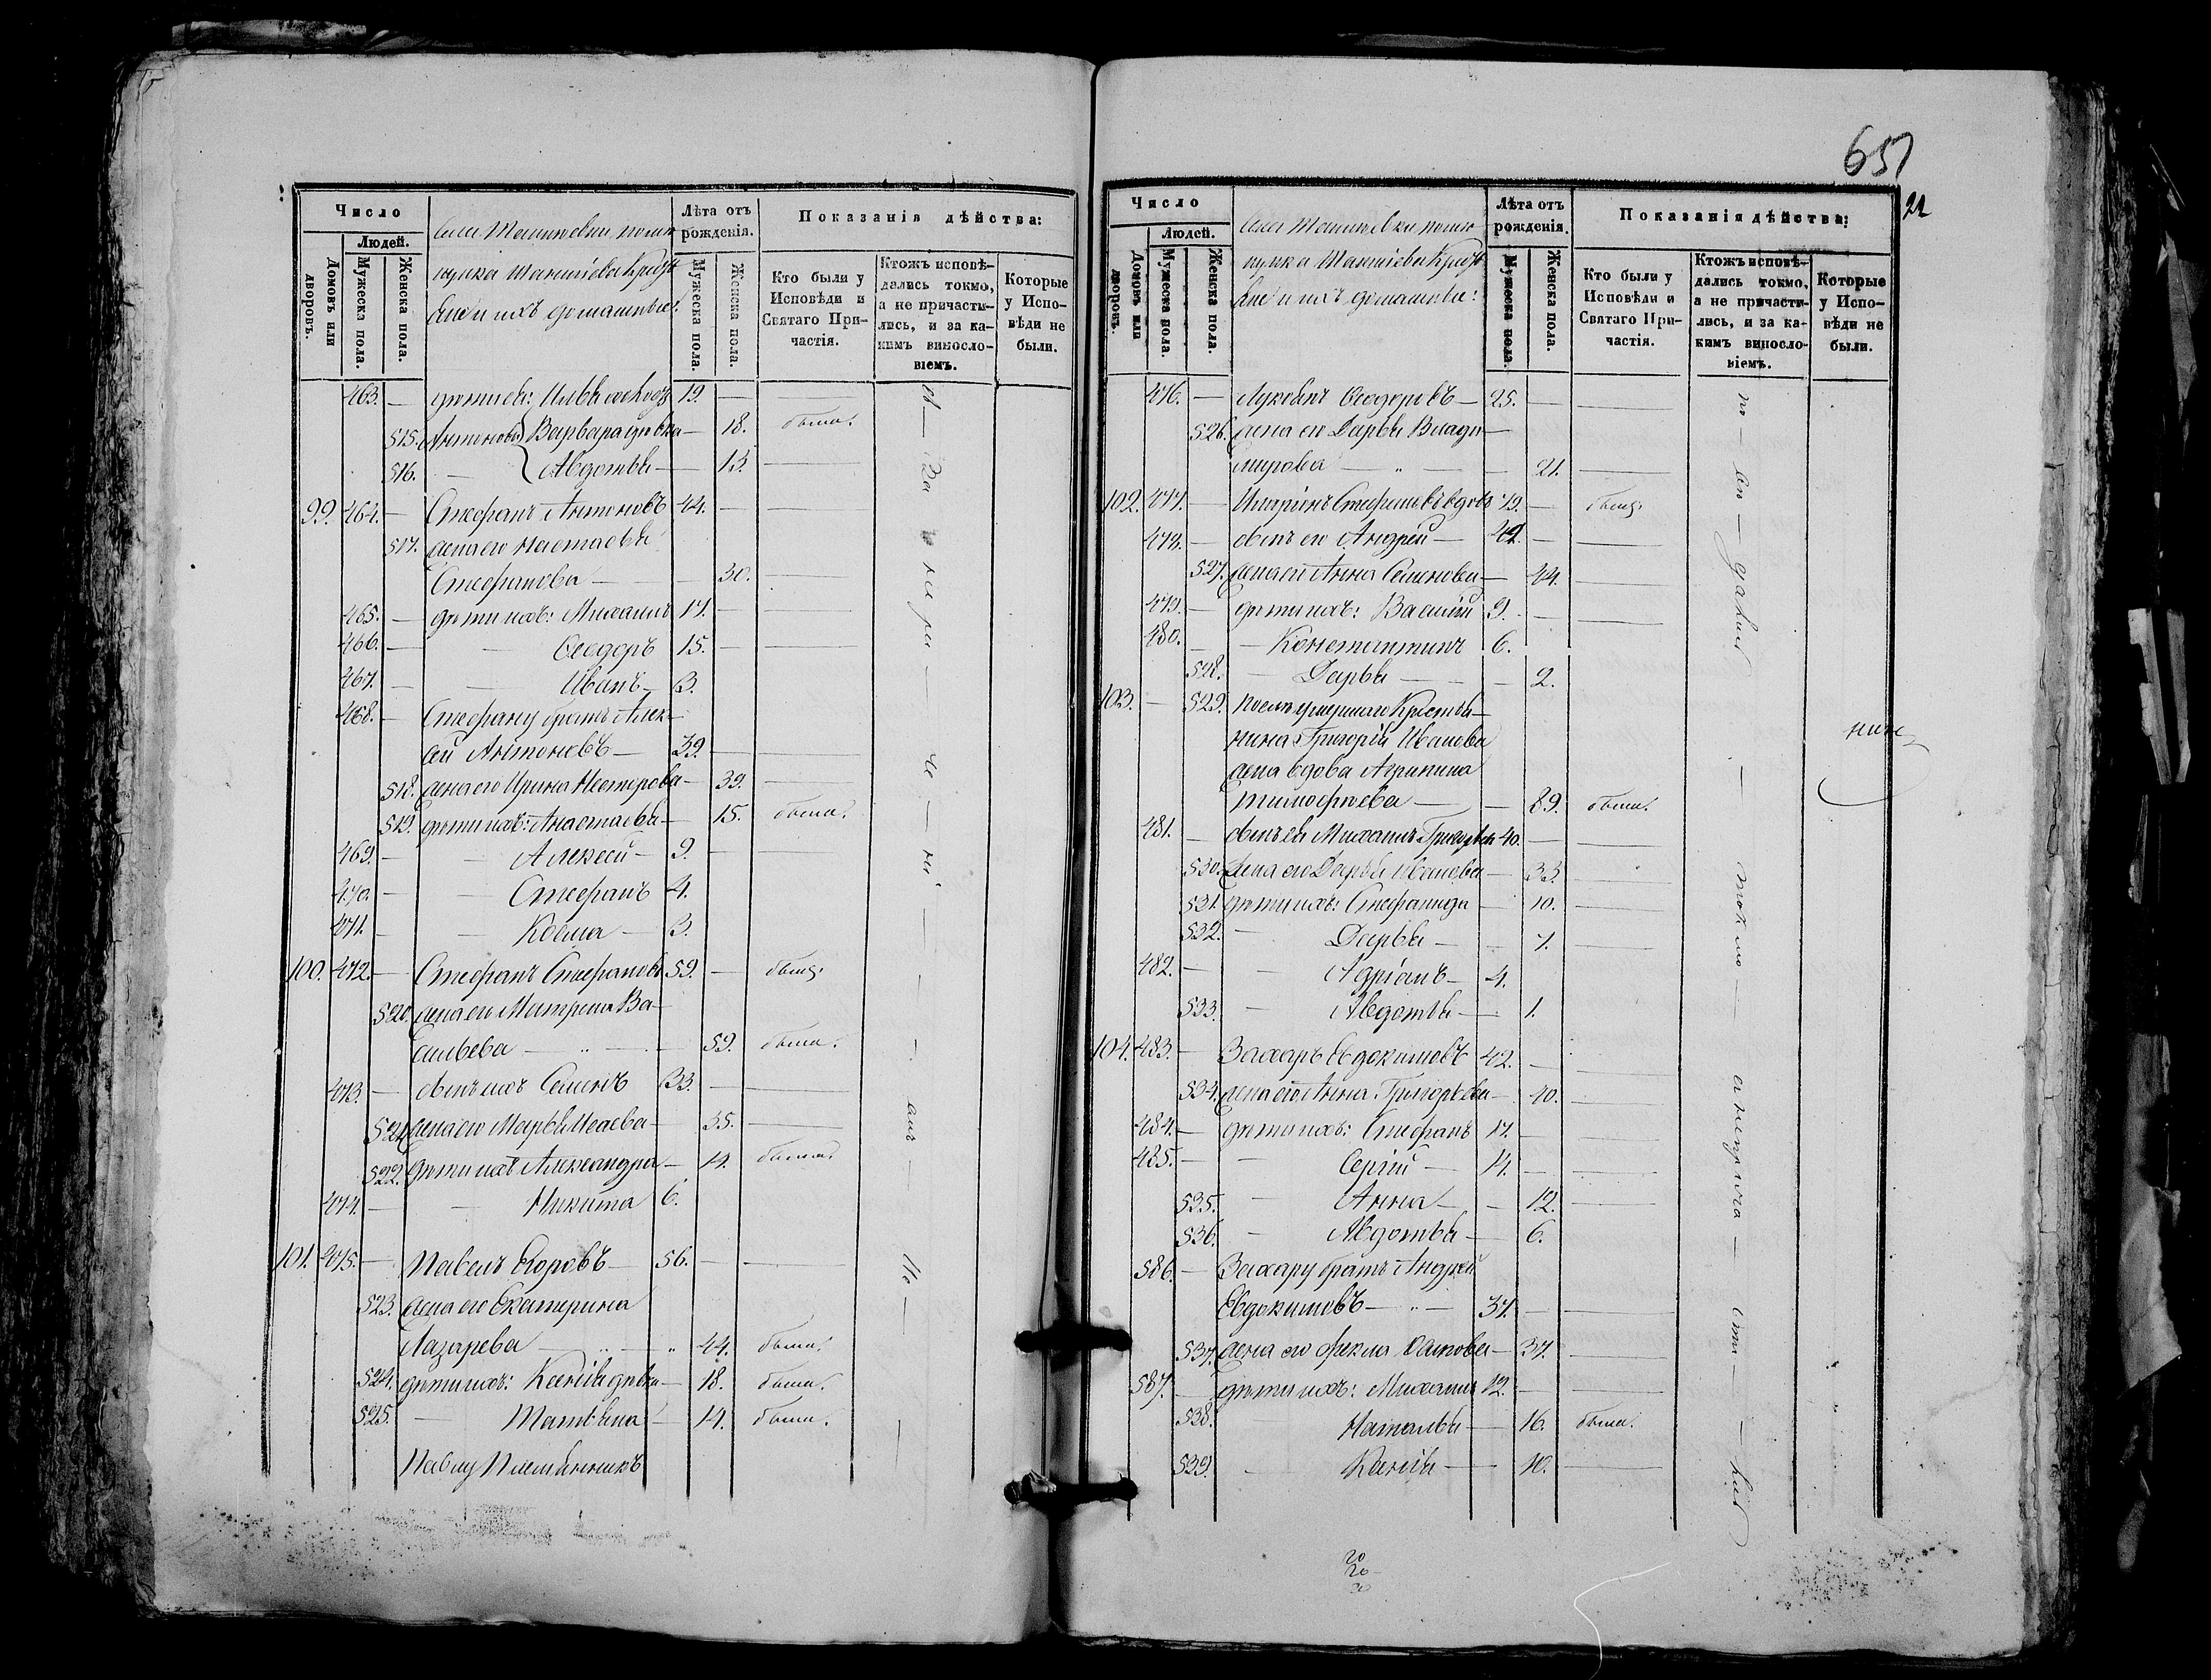 Число
Людей.
Домовъ или дворовъ.
Мужеска пола.
Женска пола.
Лѣта отъ рожденія.
Мужеска пола.
Женска пола.
Показанія дѣйства:
Кто были у Исповѣди и Святаго Причастія.
Ктожъ исповѣ-
дались токмо,
а не причасти-
лись, и за ка-
кимъ винословіемъ.
Которые у Исповѣди не были.
463. — 19. —
515. Антоновы Варвара дѣвка — 18. была.
516. — Авдотья — 13. —
99. 464. — Стефанъ Антоновъ 44. —
517. жена его Настасья
Стефанова — 30. —
465. — дѣти ихъ: Михаилъ 17. —
466. — Ѳеодоръ 15. —
467. — Иванъ — 3.
468. — Стефану братъ Алек-
ѣй Антоновъ — 39. —
518. жена его Ирина Нестерова — 39. —
519. дѣти ихъ: Анастасья — 15. была.
469. — Алексѣй — 9. —
470. — Стефанъ 4.
471. — Косма — 3.
100. 472. — Стефанъ Стефановъ 59. — былъ
520. жена его Матрена Ва-
сильева — 59. была.
473. — сынъ ихъ Семенъ 33. —
521. жена его Марья Исаева — 35. —
522. дѣти ихъ Александра — 14. была
474. — Никита 6.
101. 475. — Павелъ Егоровъ — 56. —
523. жена его Екатерина
Лазарева — 44. была.
524. дѣти ихъ: Ксенія дѣвка — 18. была.
525. — Татьяна — 14. была.
Павлу племянникъ
651
22
Число
Людей.
Домовъ или дворовъ.
Мужеска пола.
Женска пола.
Лѣта отъ рожденія.
Мужеска пола.
Женска пола.
Показанія дѣйства:
Кто были у Исповѣди и Святаго Причастія.
Ктожъ исповѣ-
дались токмо,
а не причасти-
лись, и за ка-
кимъ винословіемъ.
Которые у Исповѣди не были.
476. — Лукьянъ Ѳеодоровъ — 25. —
526. жена его Дарья Влади-
мирова — 21. —
102. 477. — Иларіонъ Стефановъ вдовъ 79. — былъ
478. — сынъ его Андрей — 42. —
527. жена его Анна Семенова — 44. —
479. — дѣти ихъ: Василій 9. —
480. — Константинъ 6.
528. — Дарья — 2.
103. — 529. Послѣ умершаго Крестья-
нина Григорія Иванова
жена вдова Агрипина
Тимофѣева — 89. была.
481. — сынъ ея Михаилъ Григорьевъ 40. —
530. жена его Дарья Иванова — 33. —
531. дѣти ихъ: Стефанида — 10. —
532. — Дарья — 7. —
482. — Адріанъ — 4.
533. — Авдотья — 1.
104. 483. — Захаръ Евдокимовъ 42. —
534. жена его Анна Григорьева — 40. —
484. — дѣти ихъ: Стефанъ 17. —
485. — Сергій — 14. —
535. — Анна — 12. —
536. — Авдотья — 6.
586. — Захару братъ Андрей
Евдокимовъ — 37. —
537. жена его Ѳекла — 37. —
587. — дѣти ихъ: Михаилъ 12. —
538. Наталья — 16. была.
539. — Ксенія — 10. —
20
20